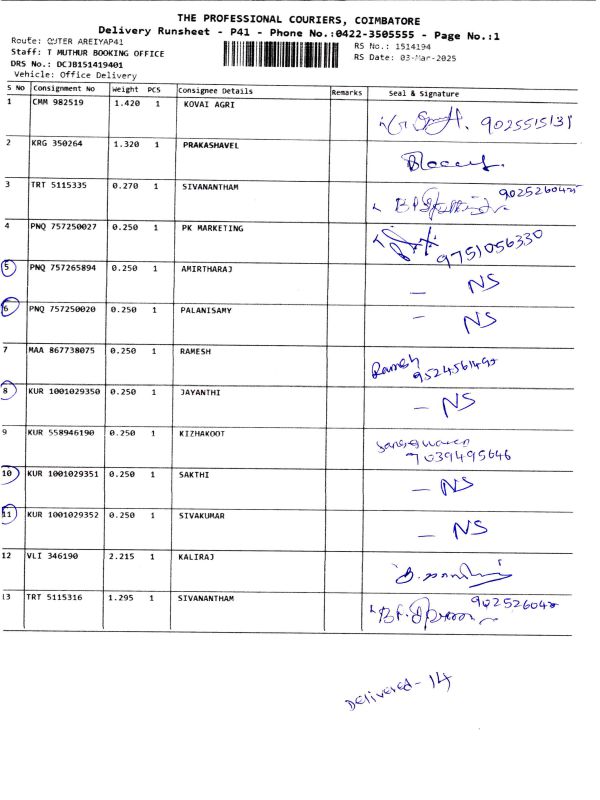 THE PROFESSIONAL COURIERS, COIMBATORE
Delivery Runsheet - P41 - Phone No.:0422-3505555 - Page No.:1
Route: OUTER AREIYAP41
RS No.: 1514194
Staff: T MUTHUR BOOKING OFFICE
RS Date: 03-Mar-2025
DRS No.: DCJB151419401
Vehicle: Office Delivery
S No Consignment No Weight PCS Consignee Details Remarks Seal & Signature
1 CMM 982519 1.420 1 KOVAI AGRI 9025515131
2 KRG 350264 1.320 1 PRAKASHAVEL
3 TRT 5115335 0.270 1 SIVANANTHAM
4 PNQ 757250027 0.250 1 PK MARKETING 9751056330
5 PNQ 757265894 0.250 1 AMIRTHARAJ - NS
6 PNQ 757250020 0.250 1 PALANISAMY - NS
7 MAA 867738075 0.250 1 RAMESH Ramesh
8 KUR 1001029350 0.250 1 JAYANTHI - NS
9 KUR 558946190 0.250 1 KIZHAKOOT
7039495646
10 KUR 1001029351 0.250 1 SAKTHI - NS
11 KUR 1001029352 0.250 1 SIVAKUMAR - NS
12 VLI 346190 2.215 1 KALIRAJ
13 TRT 5115316 1.295 1 SIVANANTHAM
Delivered - 14